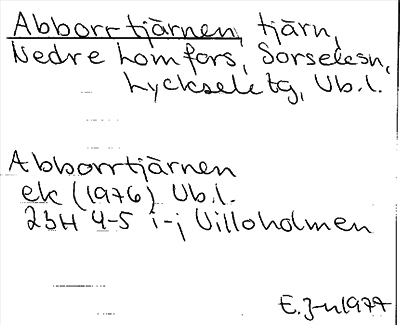 Abborrtjärnen, tjärn,
Nedre Lomfors, Sorselesn,
Lyckseletg, Vb.l.
Abborrtjärnen
ek (1976) Vb.l.
23H 4-5 i-j Villoholmen
E.J-n 1977